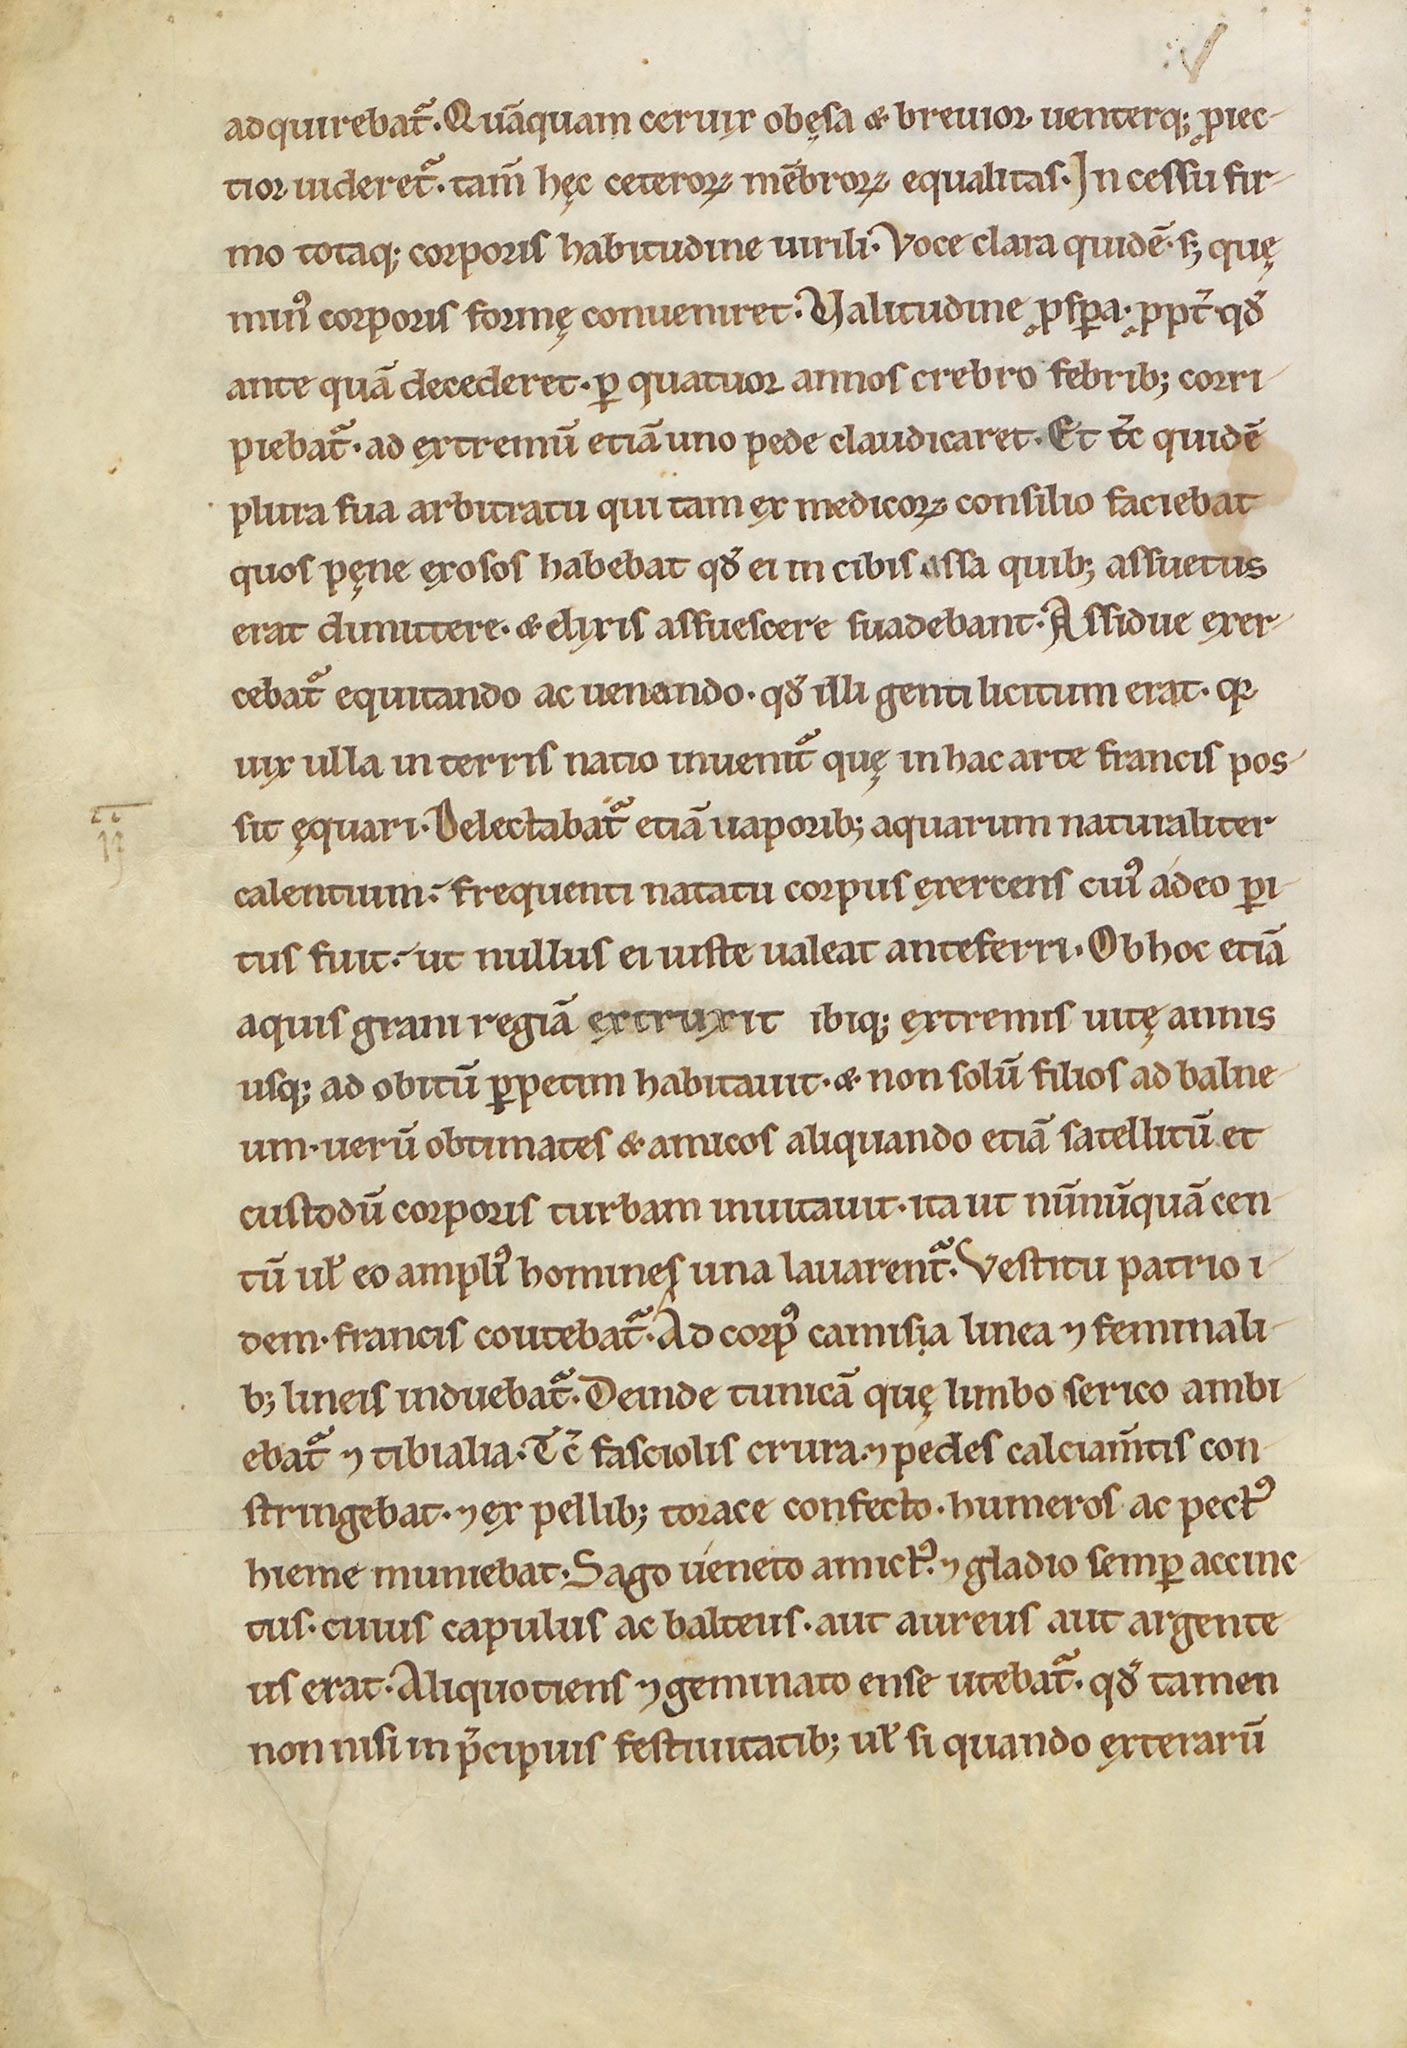 adquirebatᷓ. Quāquam ceruix obęsa & breuior uenterq; ꝓiec-
tior uideretᷓ. tam̄ hęc ceteroꝝ mēbroꝝ equalitas. Incessu fir-
mo totaq; corporis habitudine uirili. Voce clara quidē. s; quę
minꝰ corporis formę conueniret. Valitudine ꝓsꝑa. ꝓpt̄ qđ
ante quā decederet. ꝑ quatuor annos crebro febrib; corri-
piebatᷓ. ad extremū etiā uno pede claudicaret. Et tc̄ quidē
plura sua arbitratu qui tam ex medicoꝝ consilio faciebat
quos pęne exosos habebat qđ ei in cibis assa quib; assuetus
erat dimittere. & elixis assuescere suadebant. Assidue exer-
cebatᷓ equitando ac uenando. qđ illi genti licitum erat. qr
uix ulla in terris natio inuenitᷓ quę in hac arte francis pos-
sit ęquari. Delectabatᷓ etiā uaporib; aquarum naturaliter
calentium. frequenti natatu corpus exercens cuiꝰ adeo ꝑi-
tus fuit. ut nullus ei iuste ualeat anteferri. Ob hoc etiā
aquis grani regiā extruxit ibiq; extremis uitę annis
usq; ad obitū ꝑpetim habitauit. & non solū filios ad balne-
um. uerū obtimates & amicos aliquando etiā satellitū et
custodū corporis turbam inuitauit. ita ut nūnūquā cen-
tū uł eo ampliꝰ homines una lauarentᷓ. Vestitu patrio i-
dem. francis coutebatᷓ. Ad corpꝰ camisia linea ⁊ feminali-
b; lineis induebatᷓ. Deinde tunicā quę limbo serico ambi-
ebatᷓ ⁊ tibialia. Tc̄ fasciolis crura. ⁊ pedes calciam̄tis con-
stringebat. ⁊ ex pellib; torace confecto. humeros ac pectꝰ
hieme muniebat. Sago ueneto amictꝰ. ⁊ gladio semꝑ accinc-
tus. cuius capulus ac balteus. aut aureus aut argente-
us erat. Aliquotiens ⁊ geminato ense utebatᷓ. qđ tamen
non nisi in p̄cipuis festiuitatib; uł si quando exterarū